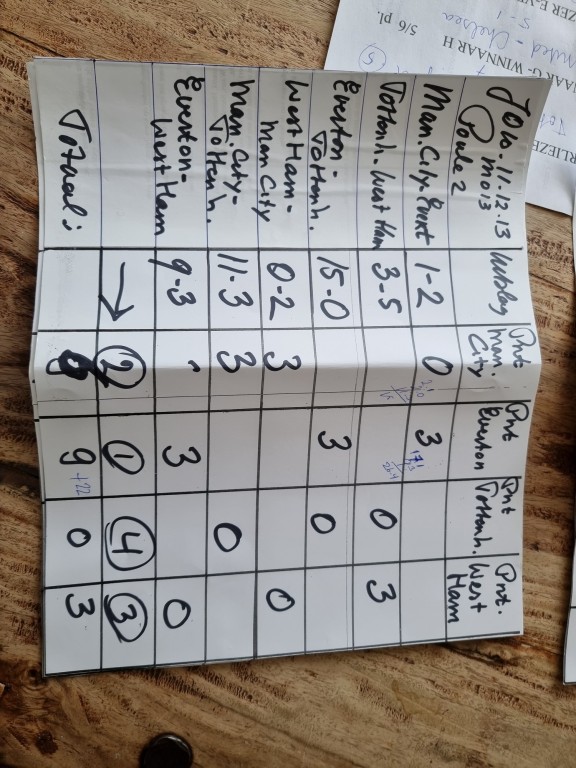 JO10.11.12.13
mo13
Poule 2
Uitslag
Pnt
Man.
City
Pnt
Everton
Pnt
Tottenh.
Pnt.
West
Ham
Man.City-
1-2
0
3
Tottenh.-West Ham
3-5
0
3
Everton-
Tottenh.
15-0
3
0
West Ham-
Man City
0-2
3
0
Man.City-
Tottenh.
11-3
3
0
Everton-
West Ham
9-3
3
0
→
2
1
4
3
Totaal:
6
9
+22
0
3
5/6 pl.
WINNAAR H
- Chelsea
5-1
5